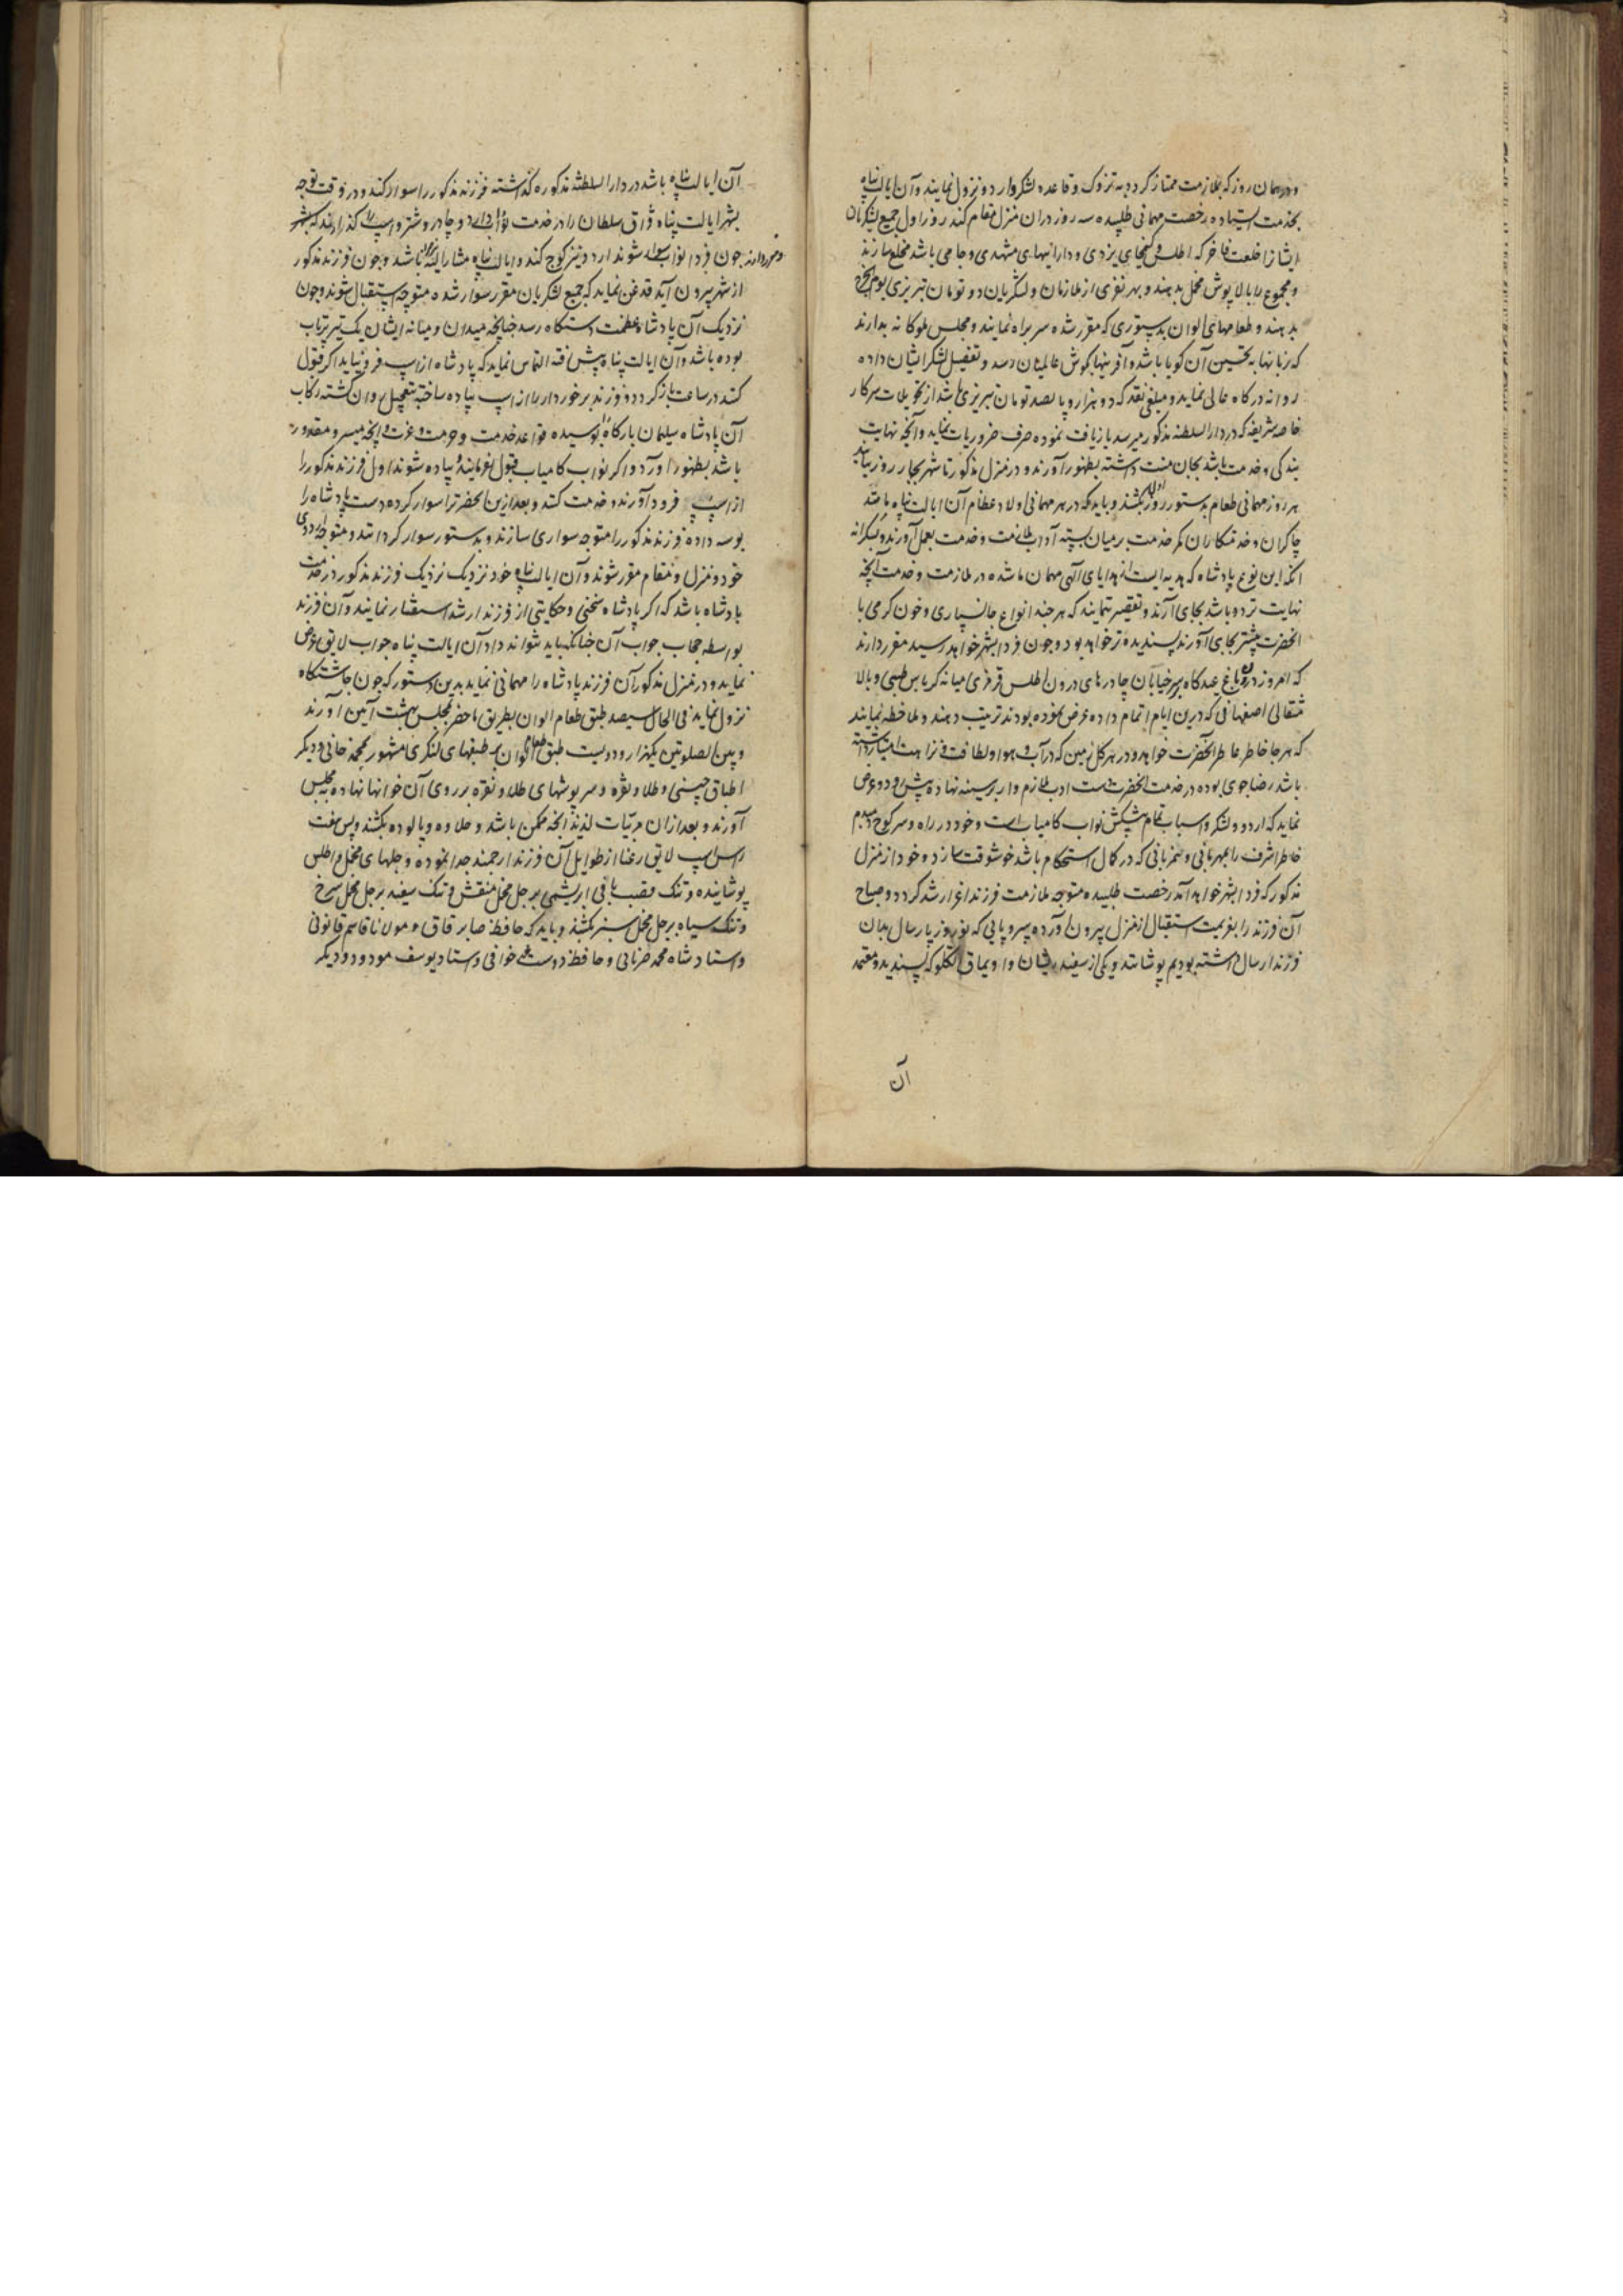 و در همان روز که بملازمت ممتاز کردد به تزوک و قاعده لشکر و اردو نزول نمایند و آن ایالت پناه
بخدمت ایستاده رخصت مهمانی طلبیده سه روز دران منزل مقام کند روز اول جمیع لشکریان
ایشانرا خلعت فاخر که اطلس و کمخای یزدی و دارائیهای مشهدی و جامی باشد مخلع سازند
و مجموع را بالاپوش مخمل بدهند و بهر نفری از ملازمان و لشکریان دو تومان تبریزی یوم الخرج
بدهند و طعامهای الوان بدستوری که مقرر شده سربراه نمایند و مجلس ملوکانه بدارند
که زبانها به تحسین آن کویا باشد و آفرینها بکوش عالمیان رسد و تفصیل لشکر ایشان داده
روانه درکاه عالی نماید و مبلغی نقد که دو هزار و پانصد تومان تبریزی باشد از تحویلات سرکار
خاصه شریفه که در دار السلطنه مذکور میرسد بازیافت نموده صرف ضروریات نماید و آنچه نهایت
بندکی و خدمت باشد بجان منت داشته بظهور آورند و در منزل مذکور تا شهر بچهار روز بیایند
هر روز مهمانی طعام بدستور روز اول بکشند و باید که در هر مهمانی اولاد عظام آن ایالت پناه مانند
چاکران و خدمتکاران کمر خدمت بر میان بسته آداب ملازمت و خدمت بعمل آورند و بشکرانه
انکه این نوع پادشاه که هدیه ایست از هدایای آلهی مهمان ما شده در ملازمت و خدمت آنچه
نهایت تردد باشد بجای آرند و تقصیر ننمایند که هر چند انواع جانسپاری و خون کرمی با
انحضرت بیشتر بجای آورند پسندیده تر خواهد بود و چون فردا بشهر خواهد رسید مقرر دارند
که امروز درون باغ عیدکاه بر سر خیابان چادرهای درون اطلس قرمزی میانه کرباس طبسی و بالا
مثقالی اصفهانی که درین ایام اتمام داده عرض نموده بودند ترتیب دهند و ملاحظه نمایند
که هر جا خاطر عاطر انحضرت خواهد و در هر کل زمین که در آب و هوا و لطافت و نزاهت امتیاز داشته
باشد رضاجوی بوده در خدمت انحضرت دست ادب ملازم وار بر سینه نهاده پیش رود و عرض
نماید که اردو و لشکر و اسباب تمام پیشکش نواب کامیاب است و خود در راه و سر کوچ دمبدم
خاطر اشرف را بمهربانی و همزبانی که در کمال استحکام باشد خوشوقت سازد و خود از منزل
مذکور که فردا بشهر خواهد آمد رخصت طلبیده متوجه ملازمت فرزند اعز ارشد کردد و صباح
آن فرزند را بعزیمت استقبال از منزل بیرون آورده سر و پایی که نوروز پارسال بدان
فرزند ارسال داشته بودیم پوشانند و یکی از سفید ریشان و اویماق تکلو که پسندیده و معتمد
آن
آن ایالت پناه باشد در دار السلطنه مذکوره کذاشته فرزند مذکور را سوار کند و در وقت توجه
بشهر ایالت پناه قزاق سلطان را در خدمت نواب دارد و چادر و شتر و اسپ را کذرانند که بشهر
و مقرر دارند چون فردا نواب سوار شوند اردو نیز کوچ کند و ایالت پناه مشار الیه باشد و چون فرزند مذکور
از شهر بیرون آید قدغن نماید که جمیع لشکریان مقرر سوار شده متوجه استقبال شوند و چون
نزدیک آن پادشاه عظمت دستکاه رسد چنانچه میدان و میانه ایشان یک تیر پرتاب
بوده باشد و آن ایالت پناه پیش رفته التماس نماید که پادشاه از اسپ فرود نیاید اکر قبول
کنند در ساعت بازکردد و فرزند برخوردار را از اسپ پیاده ساخته بتعجیل روان کشته رکاب
آن پادشاه سلیمان بارکاه را بوسیده قواعد خدمت و حرمت و عزت و انچه میسر و مقدور
باشد بظهور آورد و اکر نواب کامیاب قبول نفرمایند و پیاده شوند اول فرزند مذکور را
از اسپ فرود آورند و خدمت کند و بعد ازین انحضرترا سوار کرده دست پادشاه را
بوسه داده فرزند مذکور را متوجه سواری سازند و بدستور سوار کردانند و متوجه اردوی
خود و منزل و مقام مقرر شوند و آن ایالت پناه خود نزدیک نزدیک فرزند مذکور در خدمت
پادشاه باشد که اکر پادشاه سخنی و حکایتی از فرزند ارشد استفسار نمایند و آن فرزند
بواسطه حجاب جواب آن چنانکه باید نتواند داد آن ایالت پناه جواب لایق عرض
نماید و در منزل مذکور آن فرزند پادشاه را مهمانی نماید بدین دستور که چون چاشتکاه
نزول نماید فی الحال سیصد طبق طعام الوان بطریق ما حضر بمجلس بهشت آئین آورند
و بین الصلوتین یکهزار و دویست طبق طعام الوان بر طبقهای لنکری مشهور بمحمدخانی و دیکر
اطباق چینی و طلا و نقره و سرپوشهای طلا و نقره بر روی آن خوانها نهاده به مجلس
آورند و بعد ازان مربیات لذیذ انچه ممکن باشد و حلاوه و پالوده بکشند و پس هفت
راس اسپ لایق رعنا از طوایل آن فرزند ارجمند جدا نموده و جلهای مخمل و اطلس
پوشانیده و تنک قصب بافی ابریشمی بر جل مخمل منقش و تنک سفید بر جل مخمل سرخ
و تنک سیاه بر جل مخمل سبز بکشند و باید که حافظ صابر قاق و مولانا قاسم قانونی
و استاد شاه محمد سرنایی و حافظ دوست محمد خوافی و استاد یوسف مودود و دیکر